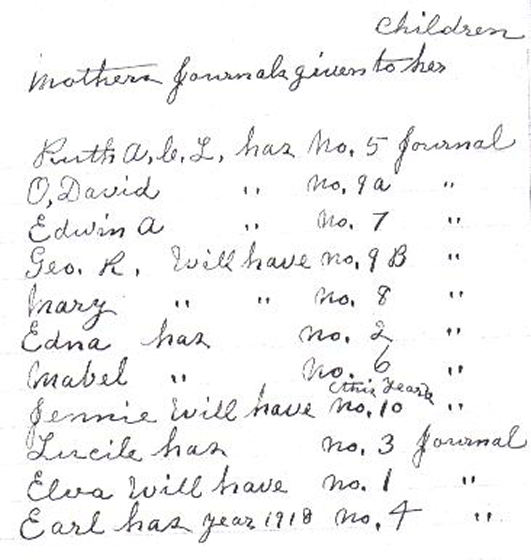 children
Mothers Journals given to her
Ruth A. C. L. has No. 5 Journal
O, David " No. 9a "
Edwin A " No. 7 "
Geo. R. Will have no. 9 B "
Mary " " no. 8 "
Edna has no. 2 "
Mabel " no. 6 "
this years
Jennie Will have no. 10 "
Lucile has no. 3 Journal
Elva Will have no. 1 "
Earl has year 1918 no. 4 "